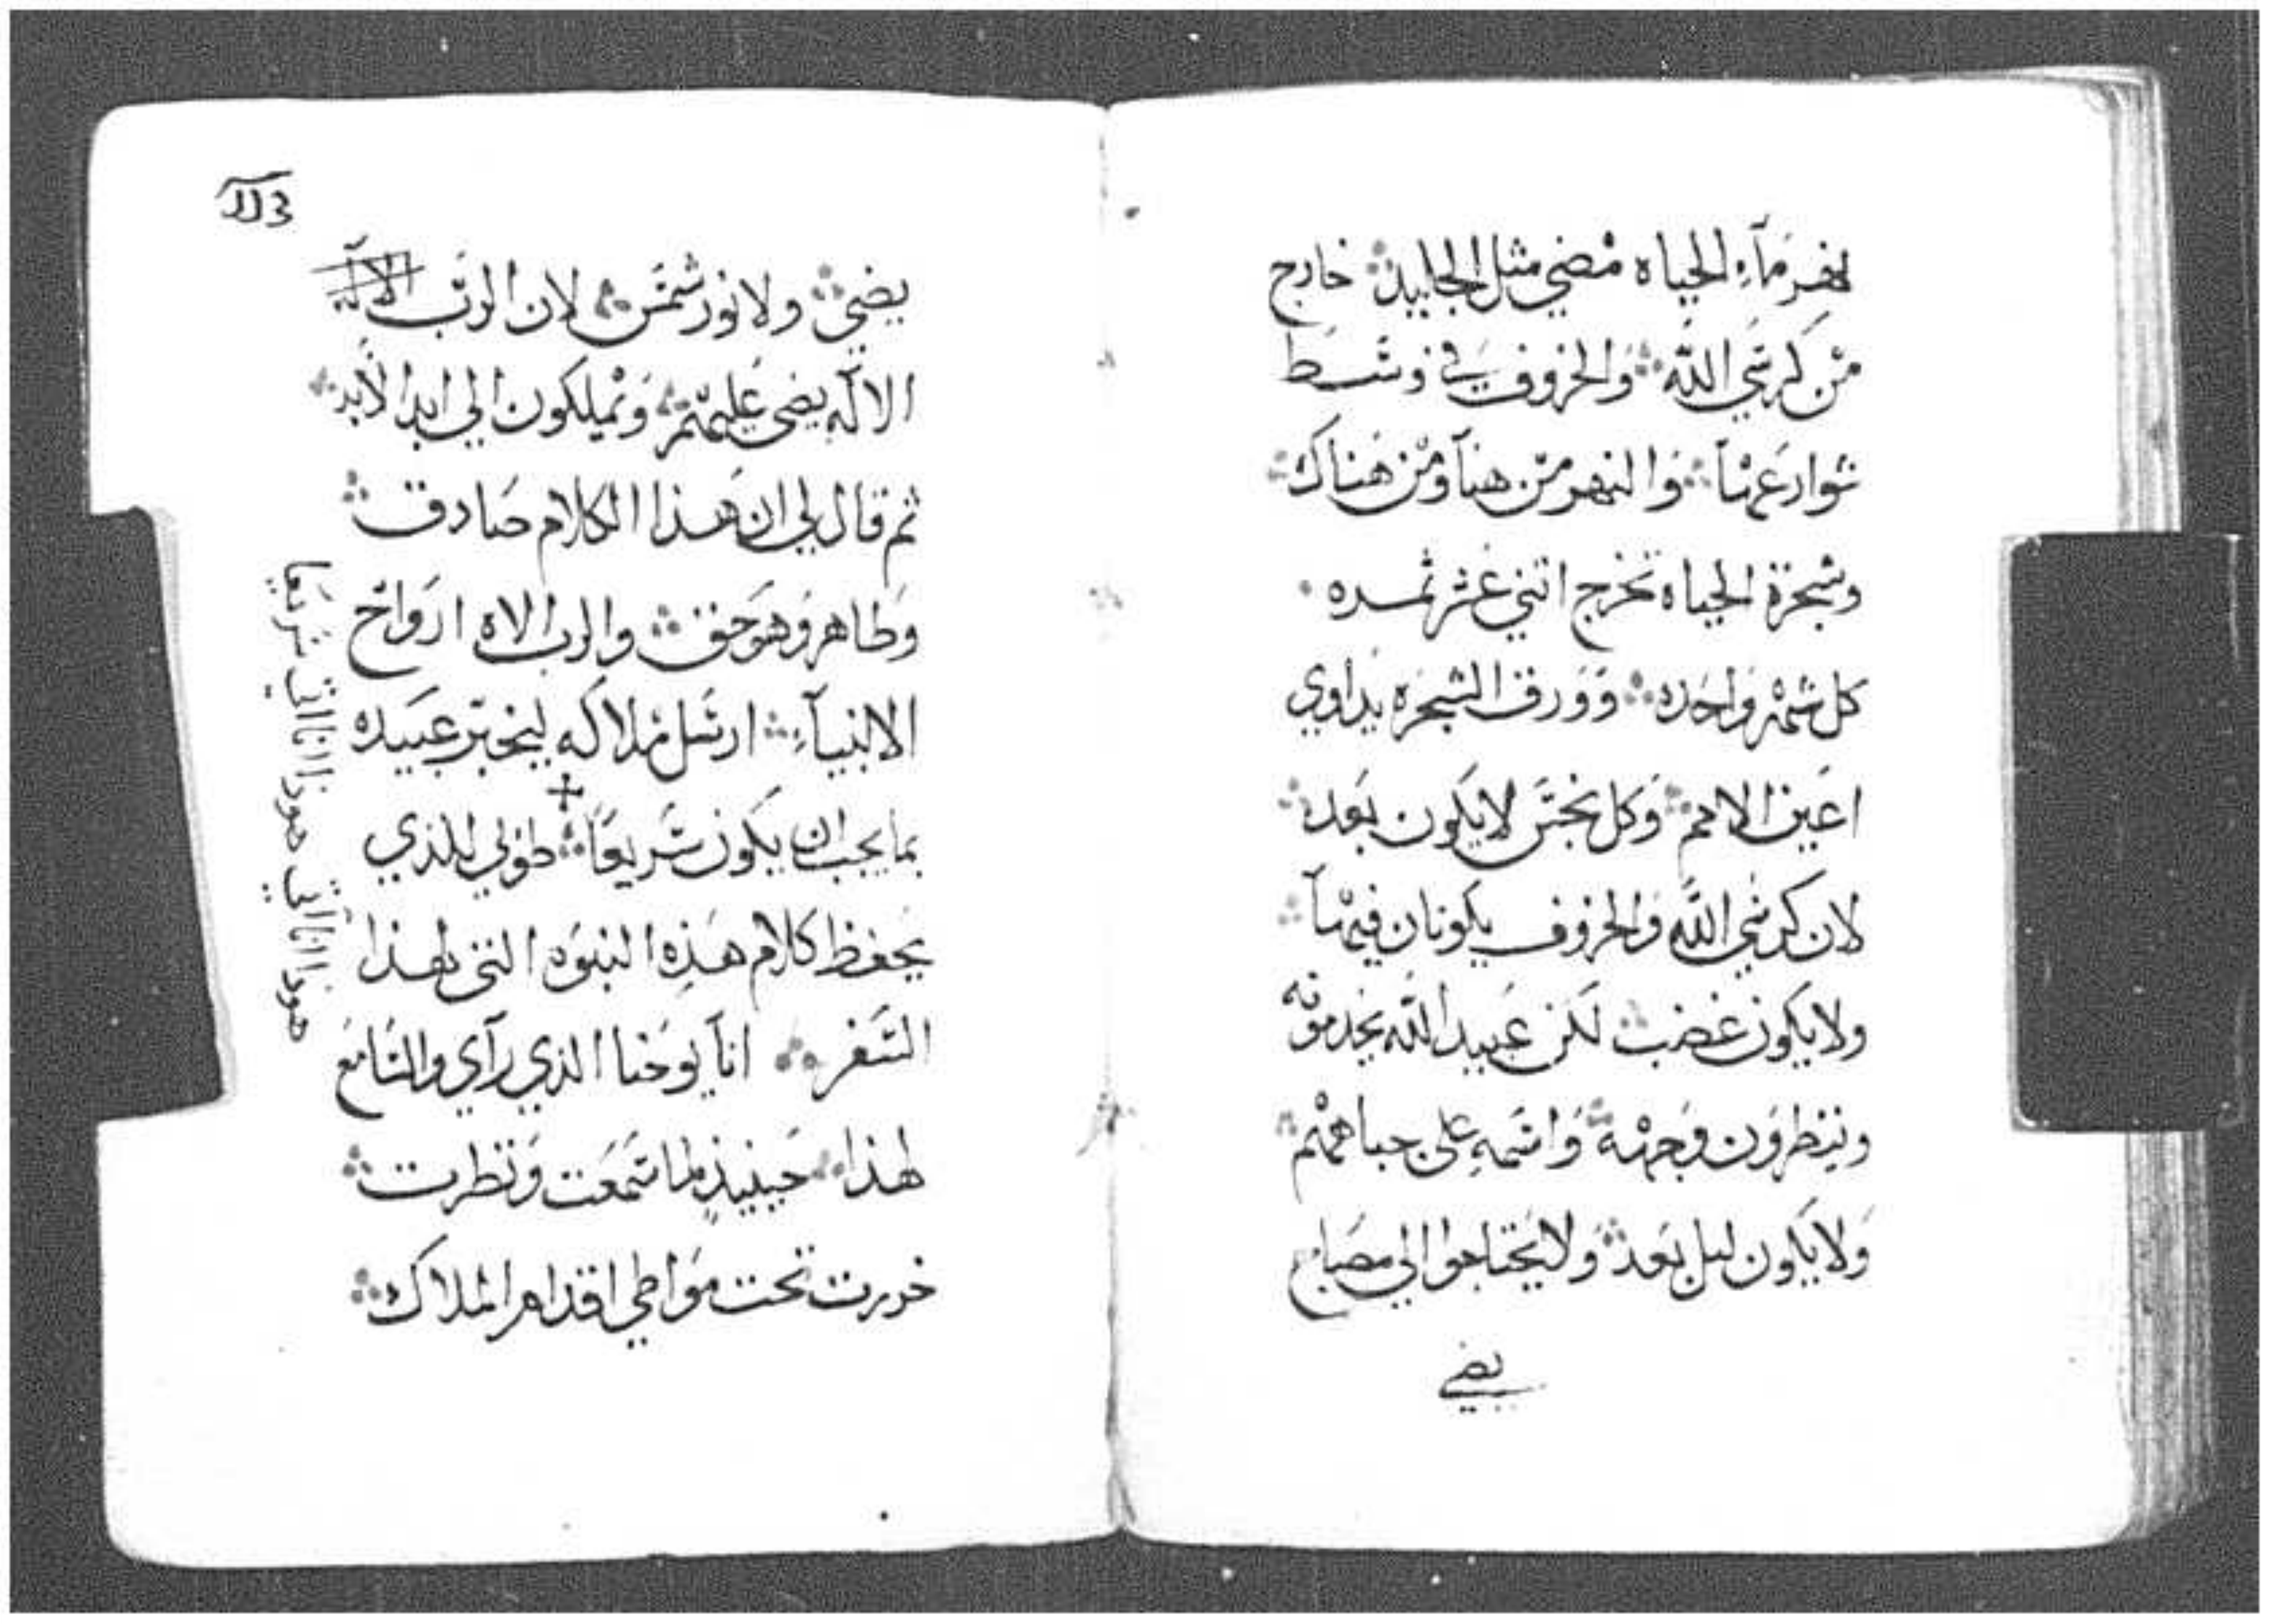 نهر مآء الحياه مضي مثل الجليد خارج
من كرسي الله والخروف في وسط
شوارعها والنهر من هنآ ومن هناك
وشجرة الحياه تخرج اتني عشر تمره
كل شهر واحده وورق الشجره يداوي
اعين الامم وكل نجس لا يكون بعد
لان كرسي الله والخروف يكونان فيهآ
ولا يكون غضب لكن عبيد الله يخدمونه
وينظرون وجهه واسمه على جباههم
ولا يكون ليل بعد ولا يحتاجوا الي مصباح
يضي
يضي ولا نور شمس لان الرب الاله
الاله يضي عليهم ويملكون الي ابد الابد
ثم قال لي ان هذا الكلام صادق
وطاهر وهو حق والرب الاه ارواح
الانبيآء ارسل ملاكه ليخبر عبيده
بما يجب ان يكون سريعا طوبي للذي
يحفظ كلام هذه النبوه التي لهذا
السفر انآ يوحنا الذي رآي والسامع
لهذا حينيذ لما سمعت ونظرت
خررت تحت مواطي اقدام الملاك
هوذا انا اتي هوذا انا اتي سريعا